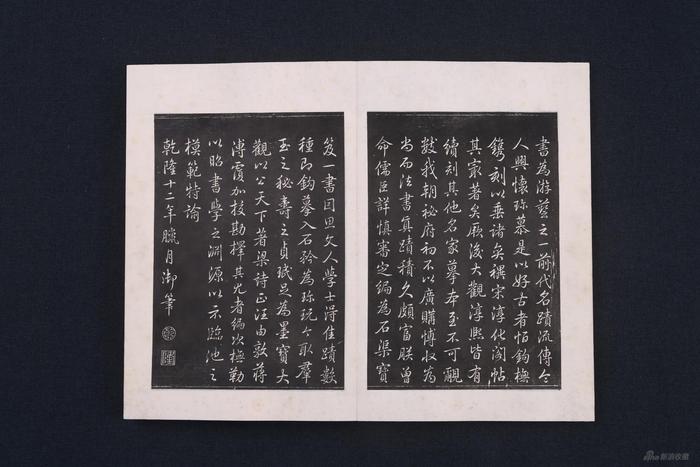 書為游藝之一前代名蹟流傳令
人興懷珍慕是以好古者恒鉤橅
鐫刻以垂諸奕禩宋淳化閣帖
其最著矣厥後大觀淳熙皆有
續刻其他名家摹本至不可覼
數我朝秘府初不以廣購博收為
尚而法書真蹟積久頗富朕曾
命儒臣詳慎審定編為石渠寶
笈一書因思文人學士得佳蹟數
種即鉤摹入石矜為珎玩今取羣
玉之秘壽之貞珉足為墨寶大
觀以公天下著梁詩正汪由敦蔣
溥覆加校勘擇其尤者編次橅勒
以昭書學之淵源以示臨池之
模範特諭
乾隆十二年臘月御筆
sina 新浪收藏